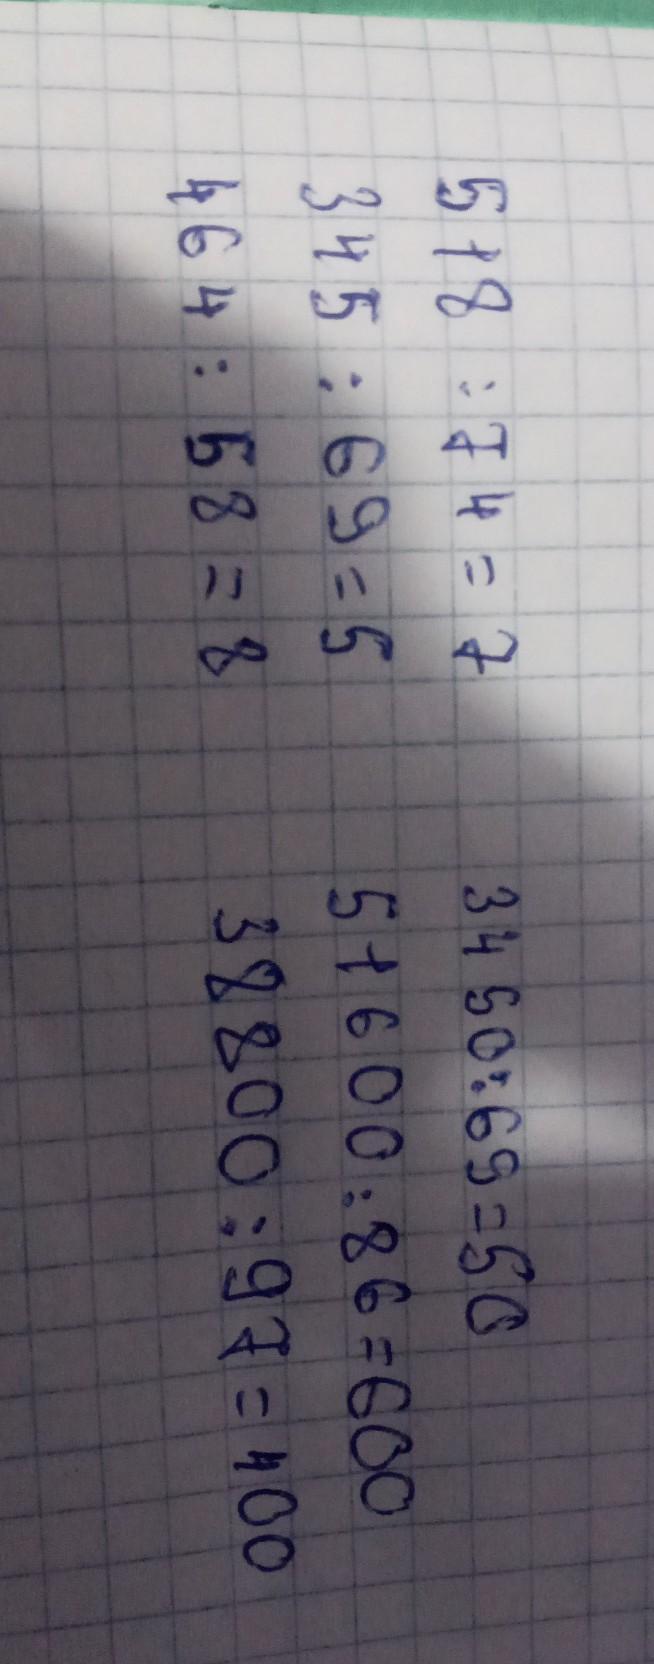 518 : 74 = 7
345 : 69 = 5
464 : 58 = 8
3450 : 69 = 50
51600 : 86 = 600
38800 : 97 = 400